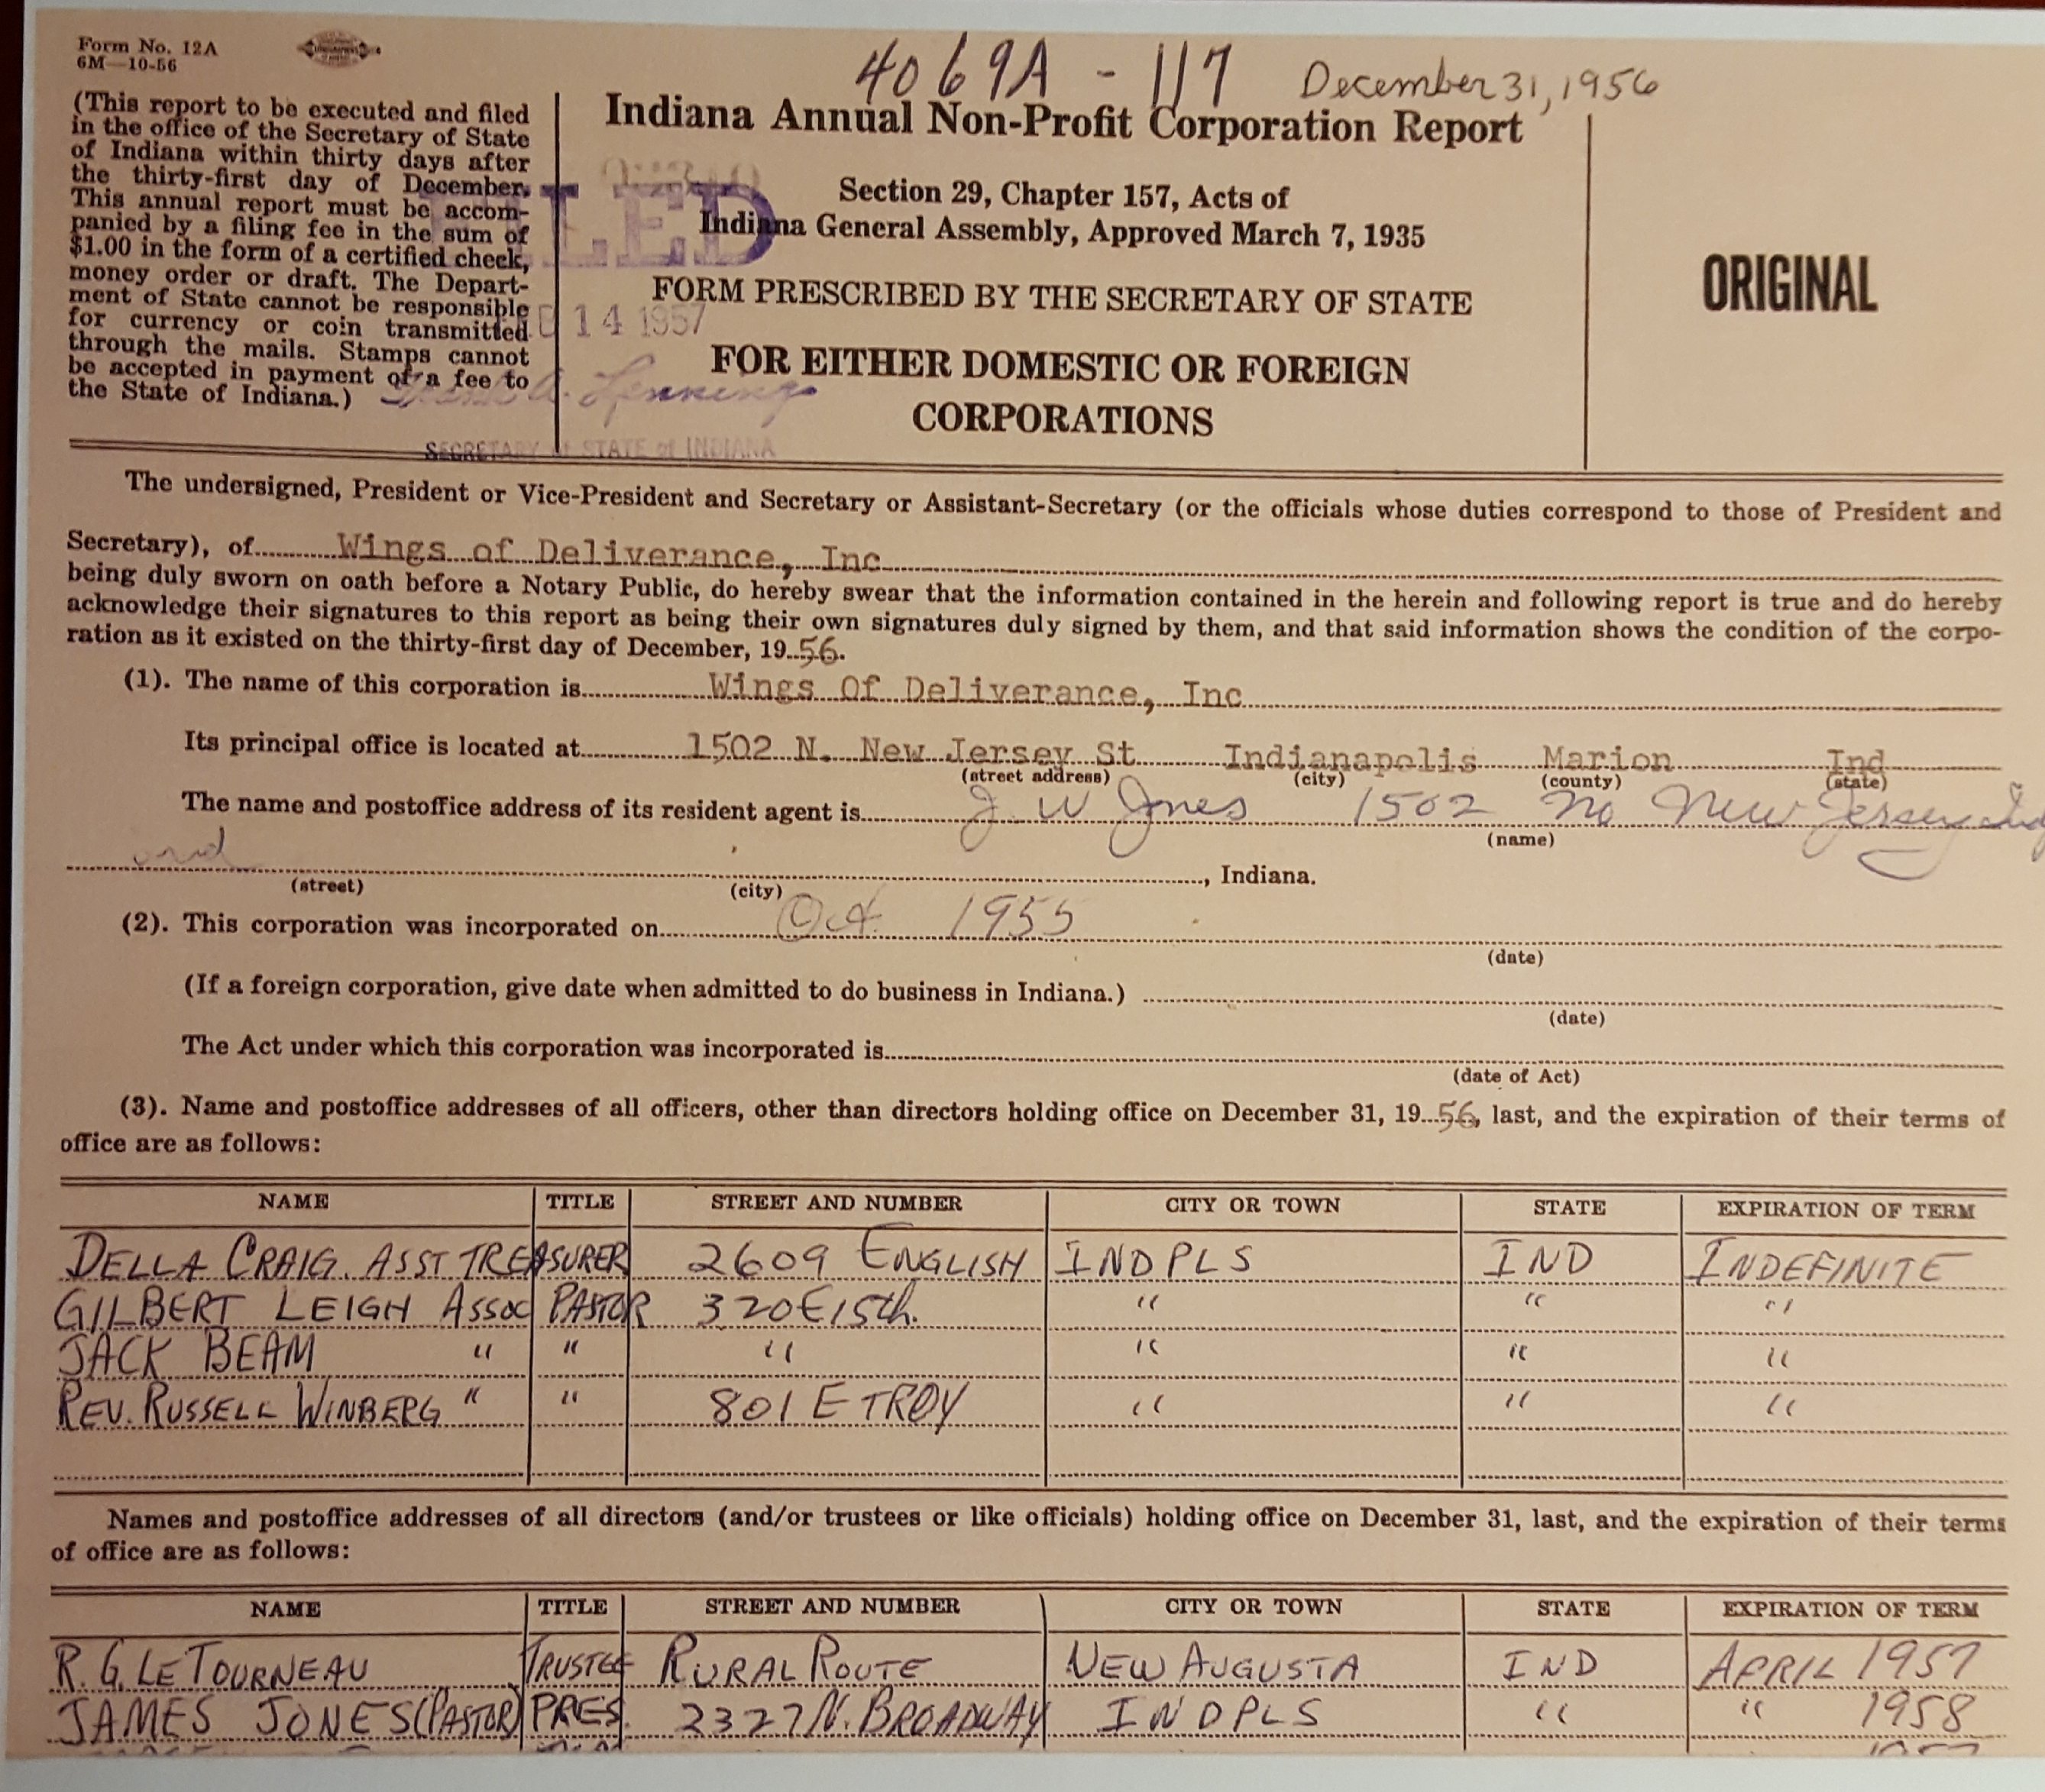 Form No. 12A
6M—10-56
4069A - 117 December 31, 1956
(This report to be executed and filed
in the office of the Secretary of State
of Indiana within thirty days after
the thirty-first day of December.
This annual report must be accom-
panied by a filing fee in the sum of
$1.00 in the form of a certified check,
money order or draft. The Depart-
ment of State cannot be responsible
for currency or coin transmitted
through the mails. Stamps cannot
be accepted in payment of a fee to
the State of Indiana.)
Indiana Annual Non-Profit Corporation Report
Section 29, Chapter 157, Acts of
Indiana General Assembly, Approved March 7, 1935
FORM PRESCRIBED BY THE SECRETARY OF STATE
FOR EITHER DOMESTIC OR FOREIGN
CORPORATIONS
ORIGINAL
14 1957
SECRETARY of STATE of INDIANA
The undersigned, President or Vice-President and Secretary or Assistant-Secretary (or the officials whose duties correspond to those of President and
Secretary), of Wings of Deliverance, Inc
being duly sworn on oath before a Notary Public, do hereby swear that the information contained in the herein and following report is true and do hereby
acknowledge their signatures to this report as being their own signatures duly signed by them, and that said information shows the condition of the corpo-
ration as it existed on the thirty-first day of December, 19 56.
(1). The name of this corporation is Wings Of Deliverance, Inc
Its principal office is located at 1502 N. New Jersey St Indianapolis Marion Ind
(street address) (city) (county) (state)
The name and postoffice address of its resident agent is J. W Jones 1502 No New Jersey
(name)
, Indiana.
(street) (city)
(2). This corporation was incorporated on Oct. 1955
(date)
(If a foreign corporation, give date when admitted to do business in Indiana.)
(date)
The Act under which this corporation was incorporated is
(date of Act)
(3). Name and postoffice addresses of all officers, other than directors holding office on December 31, 19 56, last, and the expiration of their terms of
office are as follows:
NAME TITLE STREET AND NUMBER CITY OR TOWN STATE EXPIRATION OF TERM
DELLA CRAIG. ASST TREASURER 2609 ENGLISH INDPLS IND INDEFINITE
GILBERT LEIGH ASSOC PASTOR 320 E 15th. " " "
JACK BEAM " " " " " "
REV. RUSSELL WINBERG " " 801 E TROY " " "
Names and postoffice addresses of all directors (and/or trustees or like officials) holding office on December 31, last, and the expiration of their terms
of office are as follows:
NAME TITLE STREET AND NUMBER CITY OR TOWN STATE EXPIRATION OF TERM
R. G. LE TOURNEAU TRUSTEE RURAL ROUTE NEW AUGUSTA IND APRIL 1957
JAMES JONES (PASTOR) PRES. 2327 N. BROADWAY INDPLS " " 1958